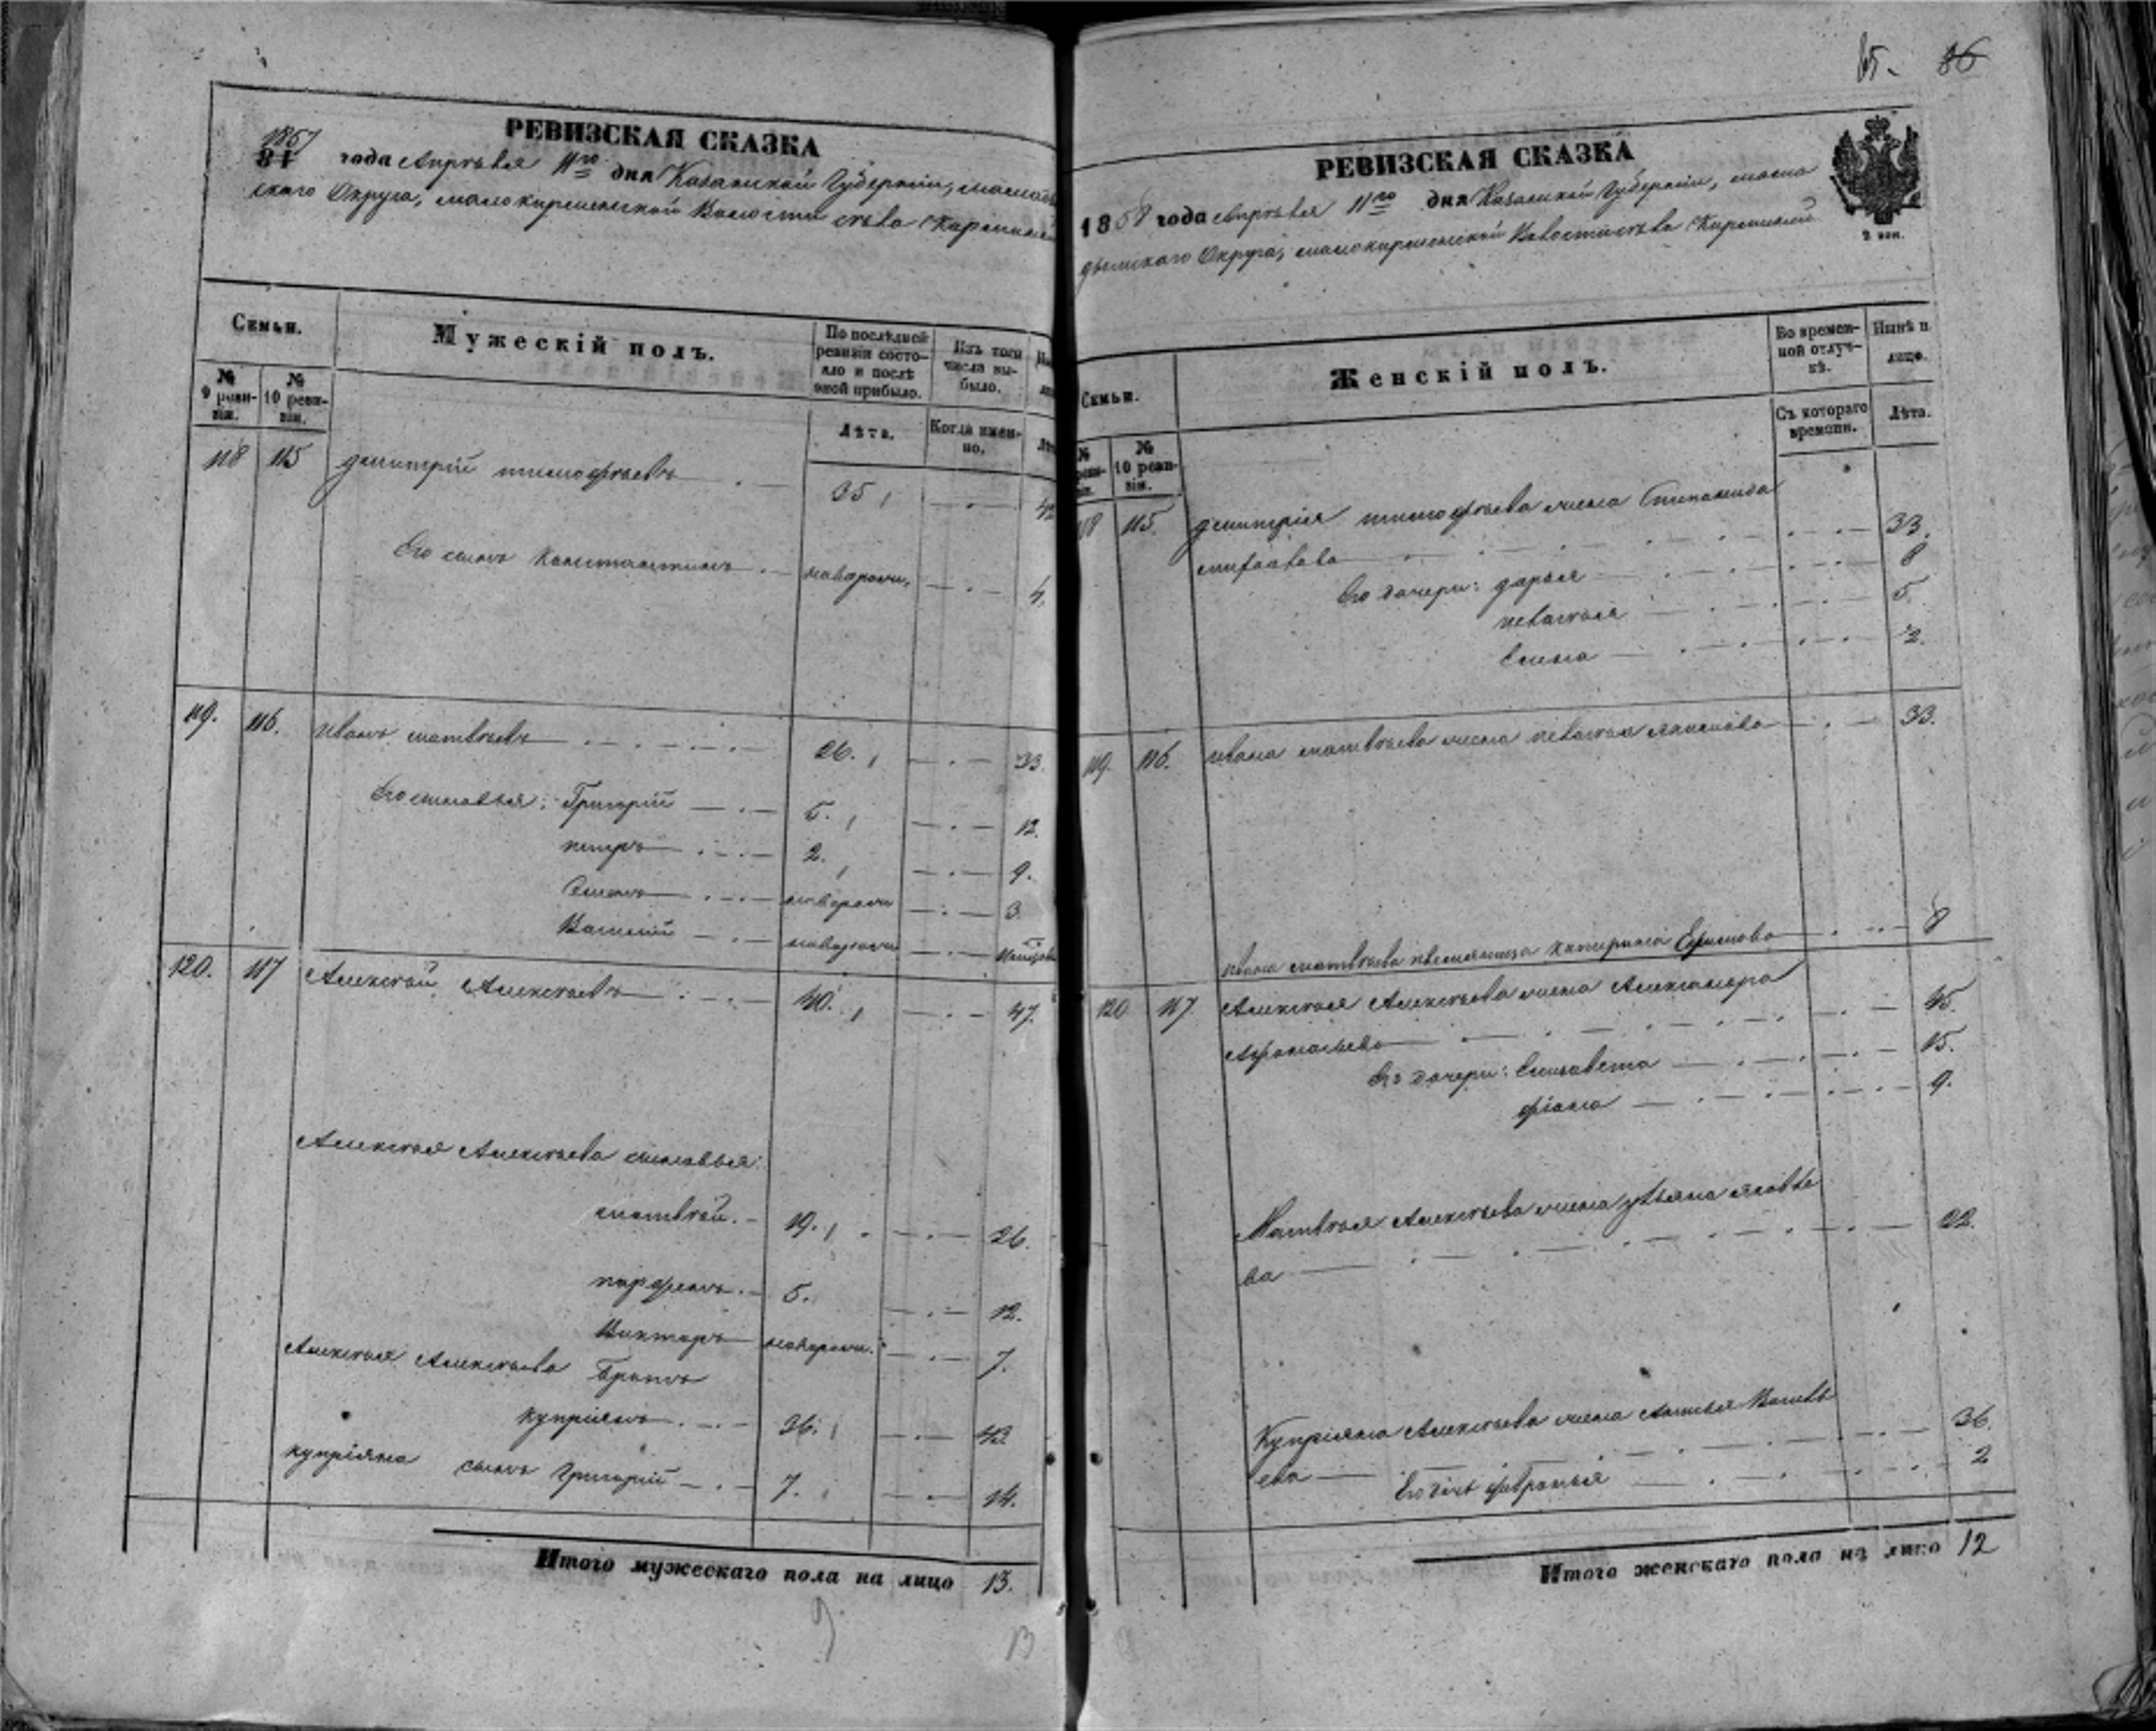 РЕВИЗСКАЯ СКАЗКА
1857
81 года Апрѣля 11го дня Казанской Губерніи,
скаго Округа, малокаршинской Волости
Семьи.
Мужескій полъ.
По послѣдней ревизіи состояло и послѣ оной прибыло.
Изъ того числа выбыло.
№ 9 ревизіи.
№ 10 ревизіи.
Лѣта.
Когда именно.
118 115 димитрій тимофѣевъ 35 42
Его сынъ Констянтинъ новорожд. 4.
119. 116. иванъ матвѣевъ 26. 33.
Его сыновья: Григорій 5. 12.
петръ 2. 9.
Семенъ новорожд 3.
Василій новорожд
120. 117 Алексѣй Алексѣевъ 40. 47.
Алексѣя Алексѣева сыновья:
матвѣй. 19. 26.
парфенъ. 5. 12.
Викторъ новорожд. 7.
Алексѣя Алексѣева братъ
Куприянъ. 36. 43.
Купріяна сынъ Григорій 7. 14.
Итого мужескаго пола на лицо 13.
13
65. 36
РЕВИЗСКАЯ СКАЗКА
1858 года Апрѣля 11го дня Казанской Губерніи,
Округа, малокаршинской Волости
2 коп.
Семьи.
Женскій полъ.
Во временной отлучкѣ.
Нынѣ на лицо.
№ 10 ревизіи.
Съ котораго времени.
Лѣта.
118 115. димитрія тимофѣева жена Степанида
33.
Его дочери: дарья 8
5
Елена 2.
119. 116. ивана матвѣева жена 33.
ивана матвѣева племянница катерина Ефимова 8
120 117 Алексѣя Алексѣева жена Александра
Афонасьева 45.
Его дочери: Елизавета 15.
9.
Матвѣя Алексѣева жена ульяна яковле
ва 22.
Купріяна Алексѣева жена Василь
ева 36.
Его дочь 2
Итого женскаго пола на лицо 12